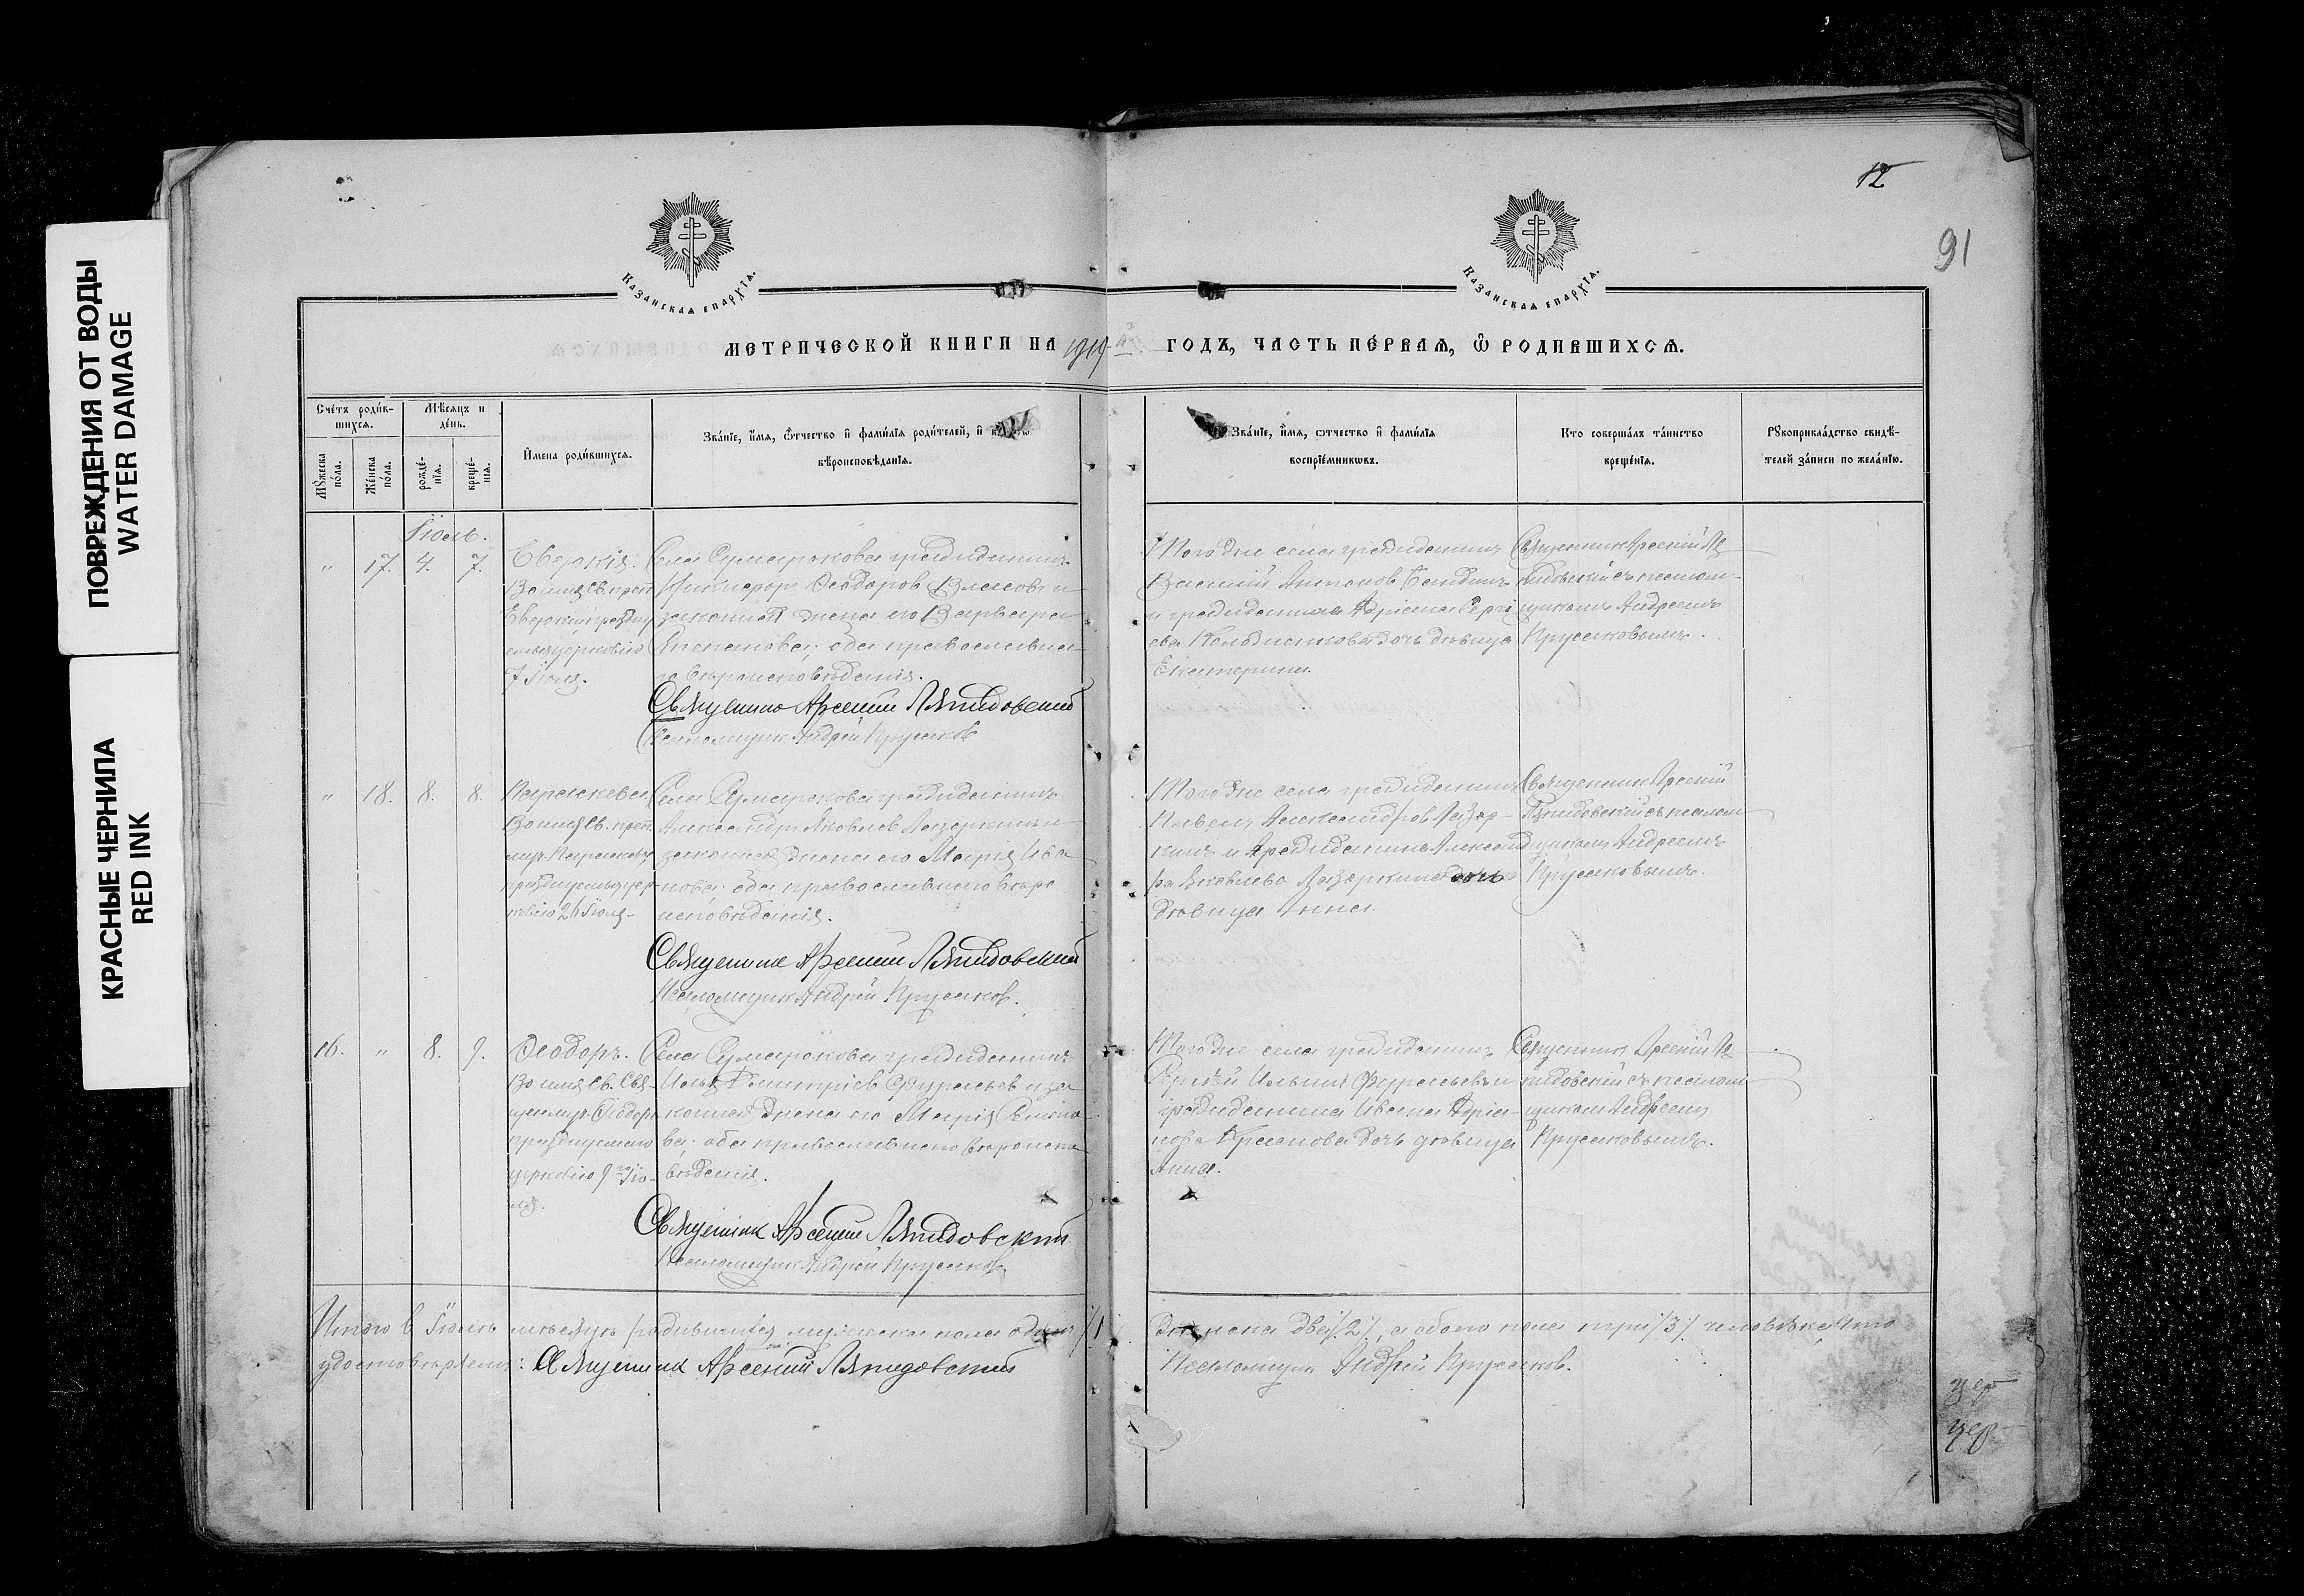 ПОВРЕЖДЕНИЯ ОТ ВОДЫ
WATER DAMAGE
КРАСНЫЕ ЧЕРНИЛА
RED INK
12
91
Казанская епархїѧ.
Казанская епархїѧ.
МЕТРИЧЕСКОЙ КНИГИ НА 1919 ГОДЪ, ЧАСТЬ ПЕ́РВАѦ, Ѽ РОДИВШИХСѦ.
Сче́тъ роди́в-
шихсѧ.
Мѣ́сѧцъ и
де́нь.
Мꙋ́жеска
по́ла.
Же́нска
по́ла.
рожде́-
нїѧ.
креще́-
нїѧ.
И҆мена роди́вшихсѧ.
Зва́нїе, и҆́мѧ, ѻ҆́тчество и҆ фами́лїѧ роди́телей, и҆
вѣ̀роисповѣ́данїѧ.
Зва́нїе, и҆́мѧ, ѻ҆́тчество и҆ фами́лїѧ
воспрїе́мникѡвъ.
Кто соверша́лъ та́инство
креще́нїѧ.
Рꙋкоприкла́дство свидѣ́-
телей за́писи по жела́нїю.
Іюль.
" 17. 4. 7. Еверкія.
Села Сумарокова гражданинъ
Никифоръ Ѳеодоровъ Власовъ и
законная жена его Варвара
оба православна-
го вѣроисповѣданія.
7 Іюля.
Священникъ Арсеній Ляпидовскій
Псаломщикъ Андрей Прусаков
Того же села гражданинъ
Василій Антонов
и гражданина Адріана Сергі
ева дочь дѣвица
Екатерина.
Священникъ Арсеній Ля-
пидовскій съ псалом-
щикомъ Андреемъ
Прусаковымъ.
" 18. 8. 8. Параскева
Во имя св. преп.
муч. Параскевы
празднуемыя цер-
ковію 26 Іюля.
Села Сумарокова гражданинъ
Александръ Яковлев Лазаркинъ и
законная жена его Марія Ива
нова; оба православнаго вѣро
исповѣданія.
Священникъ Арсеній Ляпидовскій
Псаломщикъ Андрей Прусаков.
Того же села гражданинъ
Павелъ Александров Лазар-
кинъ и гражданина Александ
ра Яковлева Лазаркина дочь
дѣвица Анна.
Священникъ Арсеній
Ляпидовскій съ псалом-
щикомъ Андреемъ
Прусаковымъ.
16. " 8. 9. Ѳеодоръ.
Во имя св. свя-
щенмуч. Ѳеодора
празднуемаго
церковію 9го Ію-
ля.
Села Сумарокова гражданинъ
Илья Димитріев Фурасьев и за
конная жена его Марія
ва; оба православнаго вѣроиспо
вѣданія.
Священникъ Арсеній Ляпидовскій
Псаломщикъ Андрей Прусаков
Того же села гражданинъ
Сергѣй Ильинъ Фурасьевъ и
гражданина Ивана Адріа-
нова Краснова дочь дѣвица
Анна.
Священникъ Арсеній Ля-
пидовскій съ псалом-
щикомъ Андреемъ
Прусаковымъ.
Итого в Іюль мѣсяцѣ родившихся мужеска пола одинъ /1/
женска два /2/, а обоего пола три /3/ человѣка, что
удостовѣряемъ: Священникъ Арсеній Ляпидовскій
Псаломщикъ Андрей Прусаков.